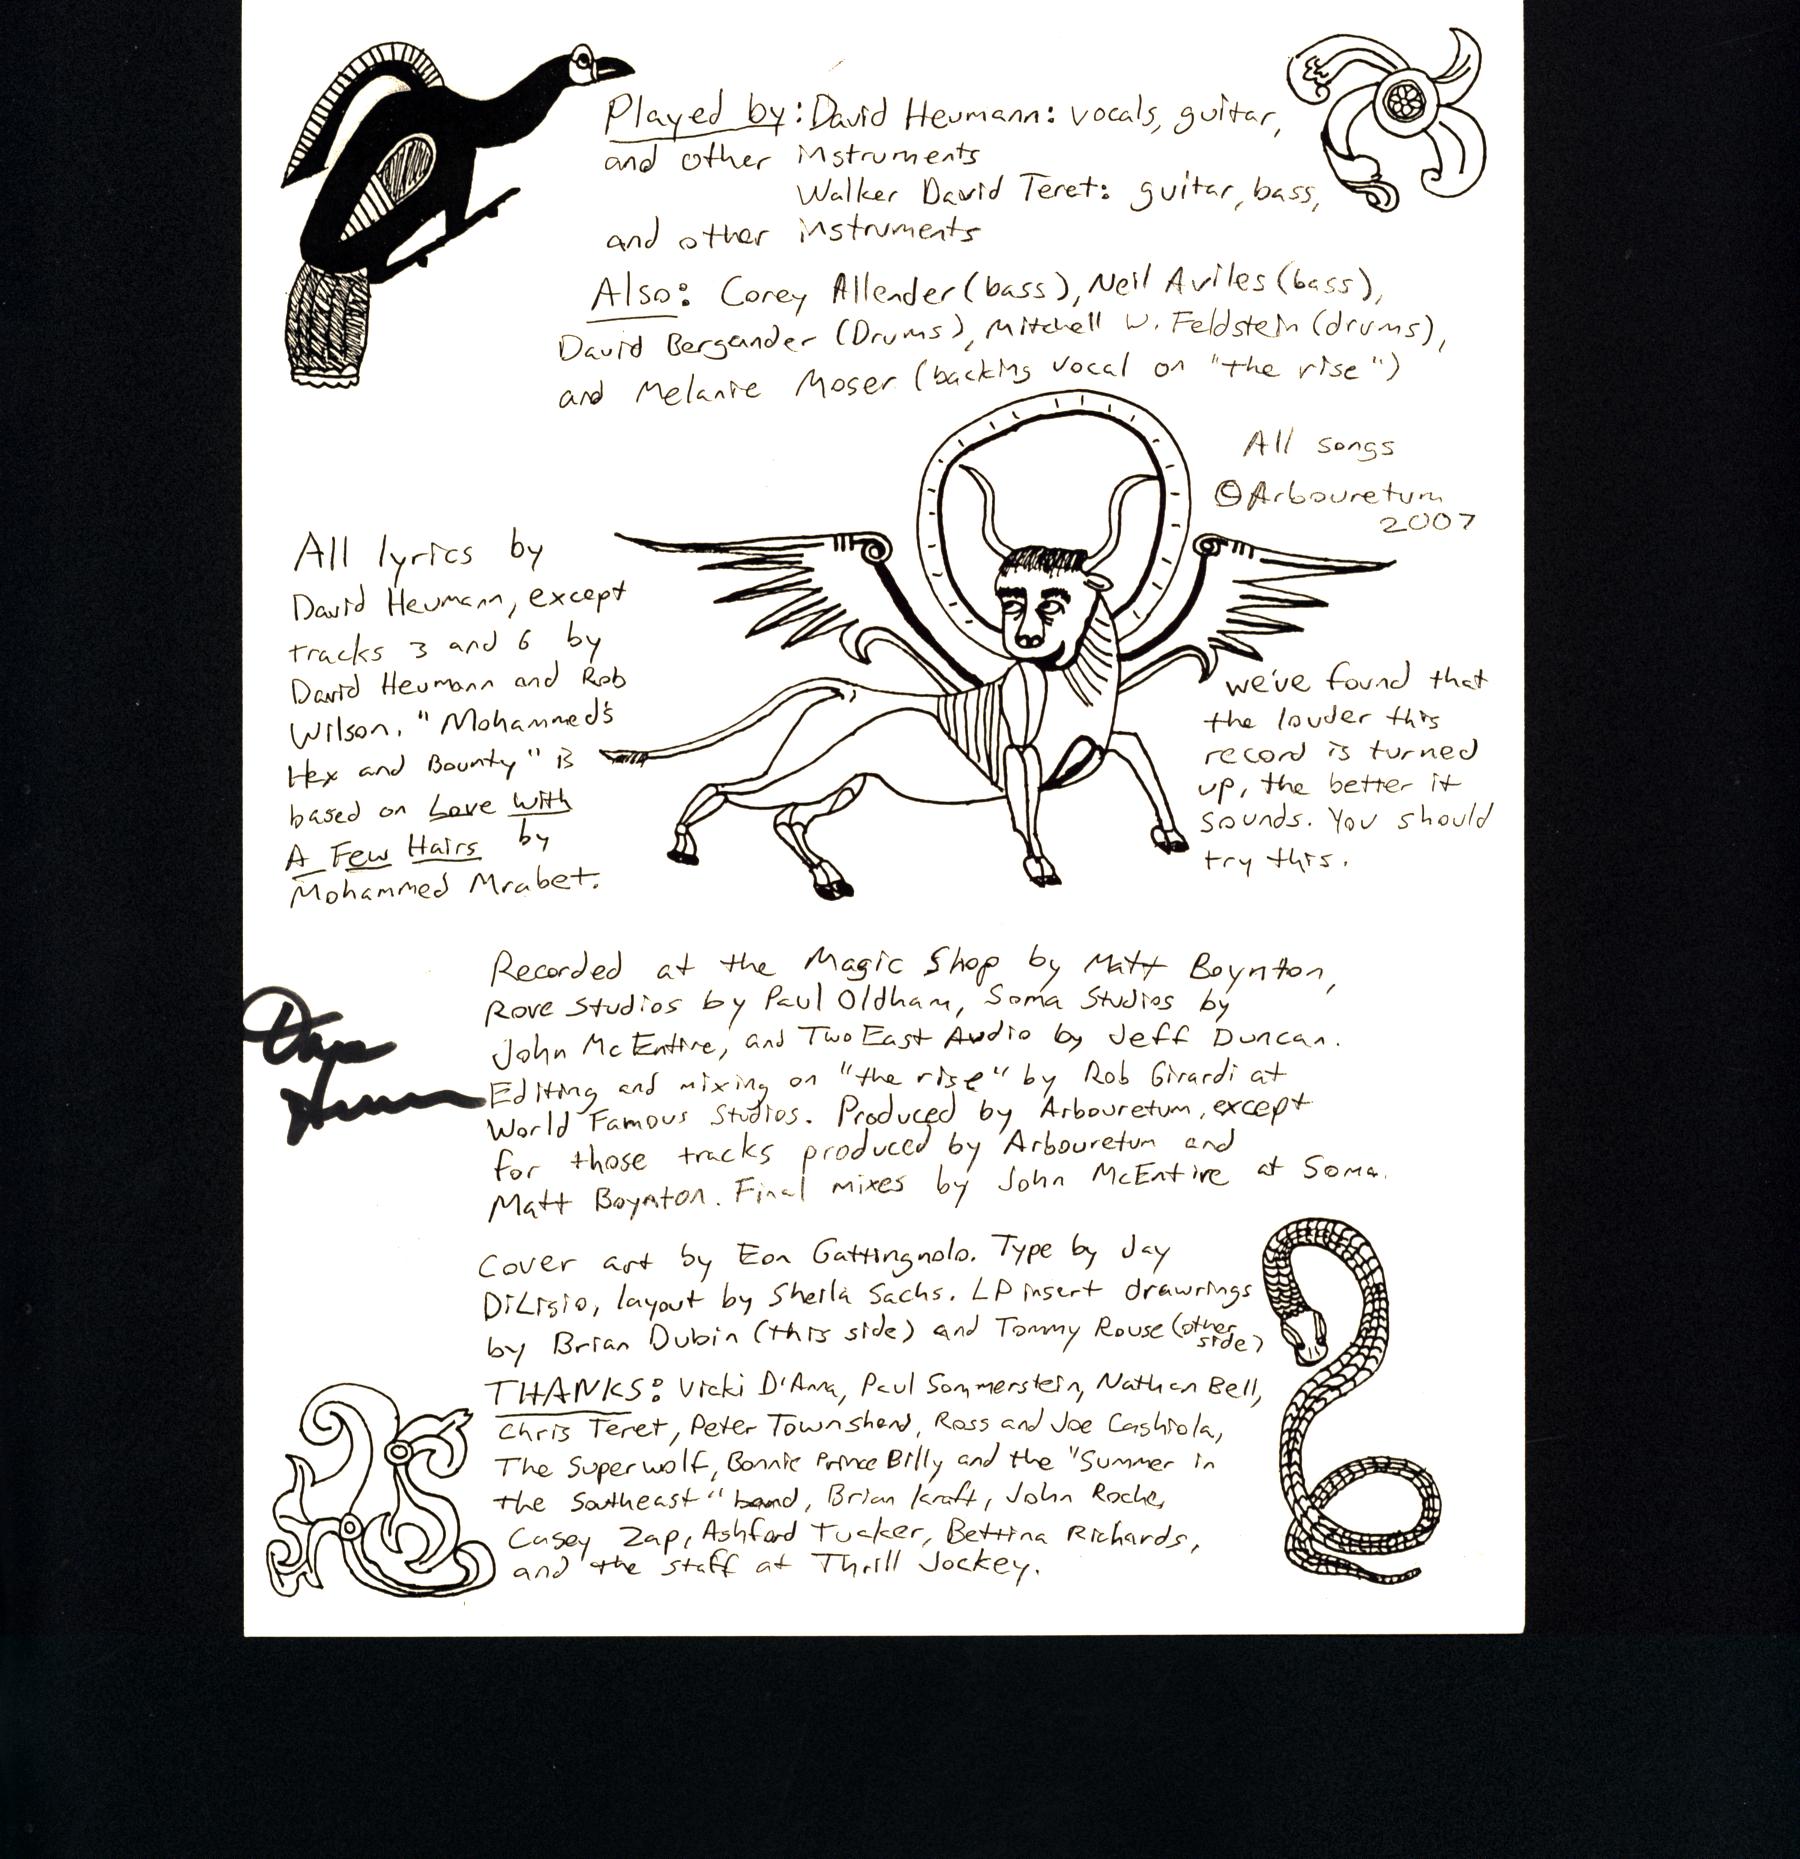 Played by: David Heumann: vocals, guitar,
and other instruments
Walker David Teret: guitar, bass,
and other instruments
Also: Corey Allender (bass), Neil Aviles (bass),
David Bergander (Drums), Mitchell W. Feldstein (drums),
and Melanie Moser (backing vocal on "the rise")
All songs
©Arbouretum
2007
All lyrics by
David Heumann, except
tracks 3 and 6 by
David Heumann and Rob
Wilson. "Mohammed's
Hex and Bounty" is
based on Love with
A Few Hairs by
Mohammed Mrabet.
we've found that
the louder this
record is turned
up, the better it
sounds. You should
try this.
Recorded at the Magic Shop by Matt Boynton,
Rove Studios by Paul Oldham, Soma Studios by
John McEntire, and Two East Audio by Jeff Duncan.
Editing and mixing on "the rise" by Rob Girardi at
World Famous Studios. Produced by Arbouretum, except
for those tracks produced by Arbouretum and
Matt Boynton. Final mixes by John McEntire at Soma.
Cover art by Eon Gattingnolo. Type by Jay
DiLisio, layout by Sheila Sachs. LP insert drawrings
by Brian Dubin (this side) and Tommy Rouse (other
side)
THANKS: Vicki D'Anna, Paul Sommerstein, Nathan Bell,
Chris Teret, Peter Townshend, Ross and Joe Cashiola,
The Superwolf, Bonnie Prince Billy and the "Summer in
the Southeast" band, Brian Kraft, John Roche,
Casey Zap, Ashford Tucker, Bettina Richards,
and the staff at Thrill Jockey.